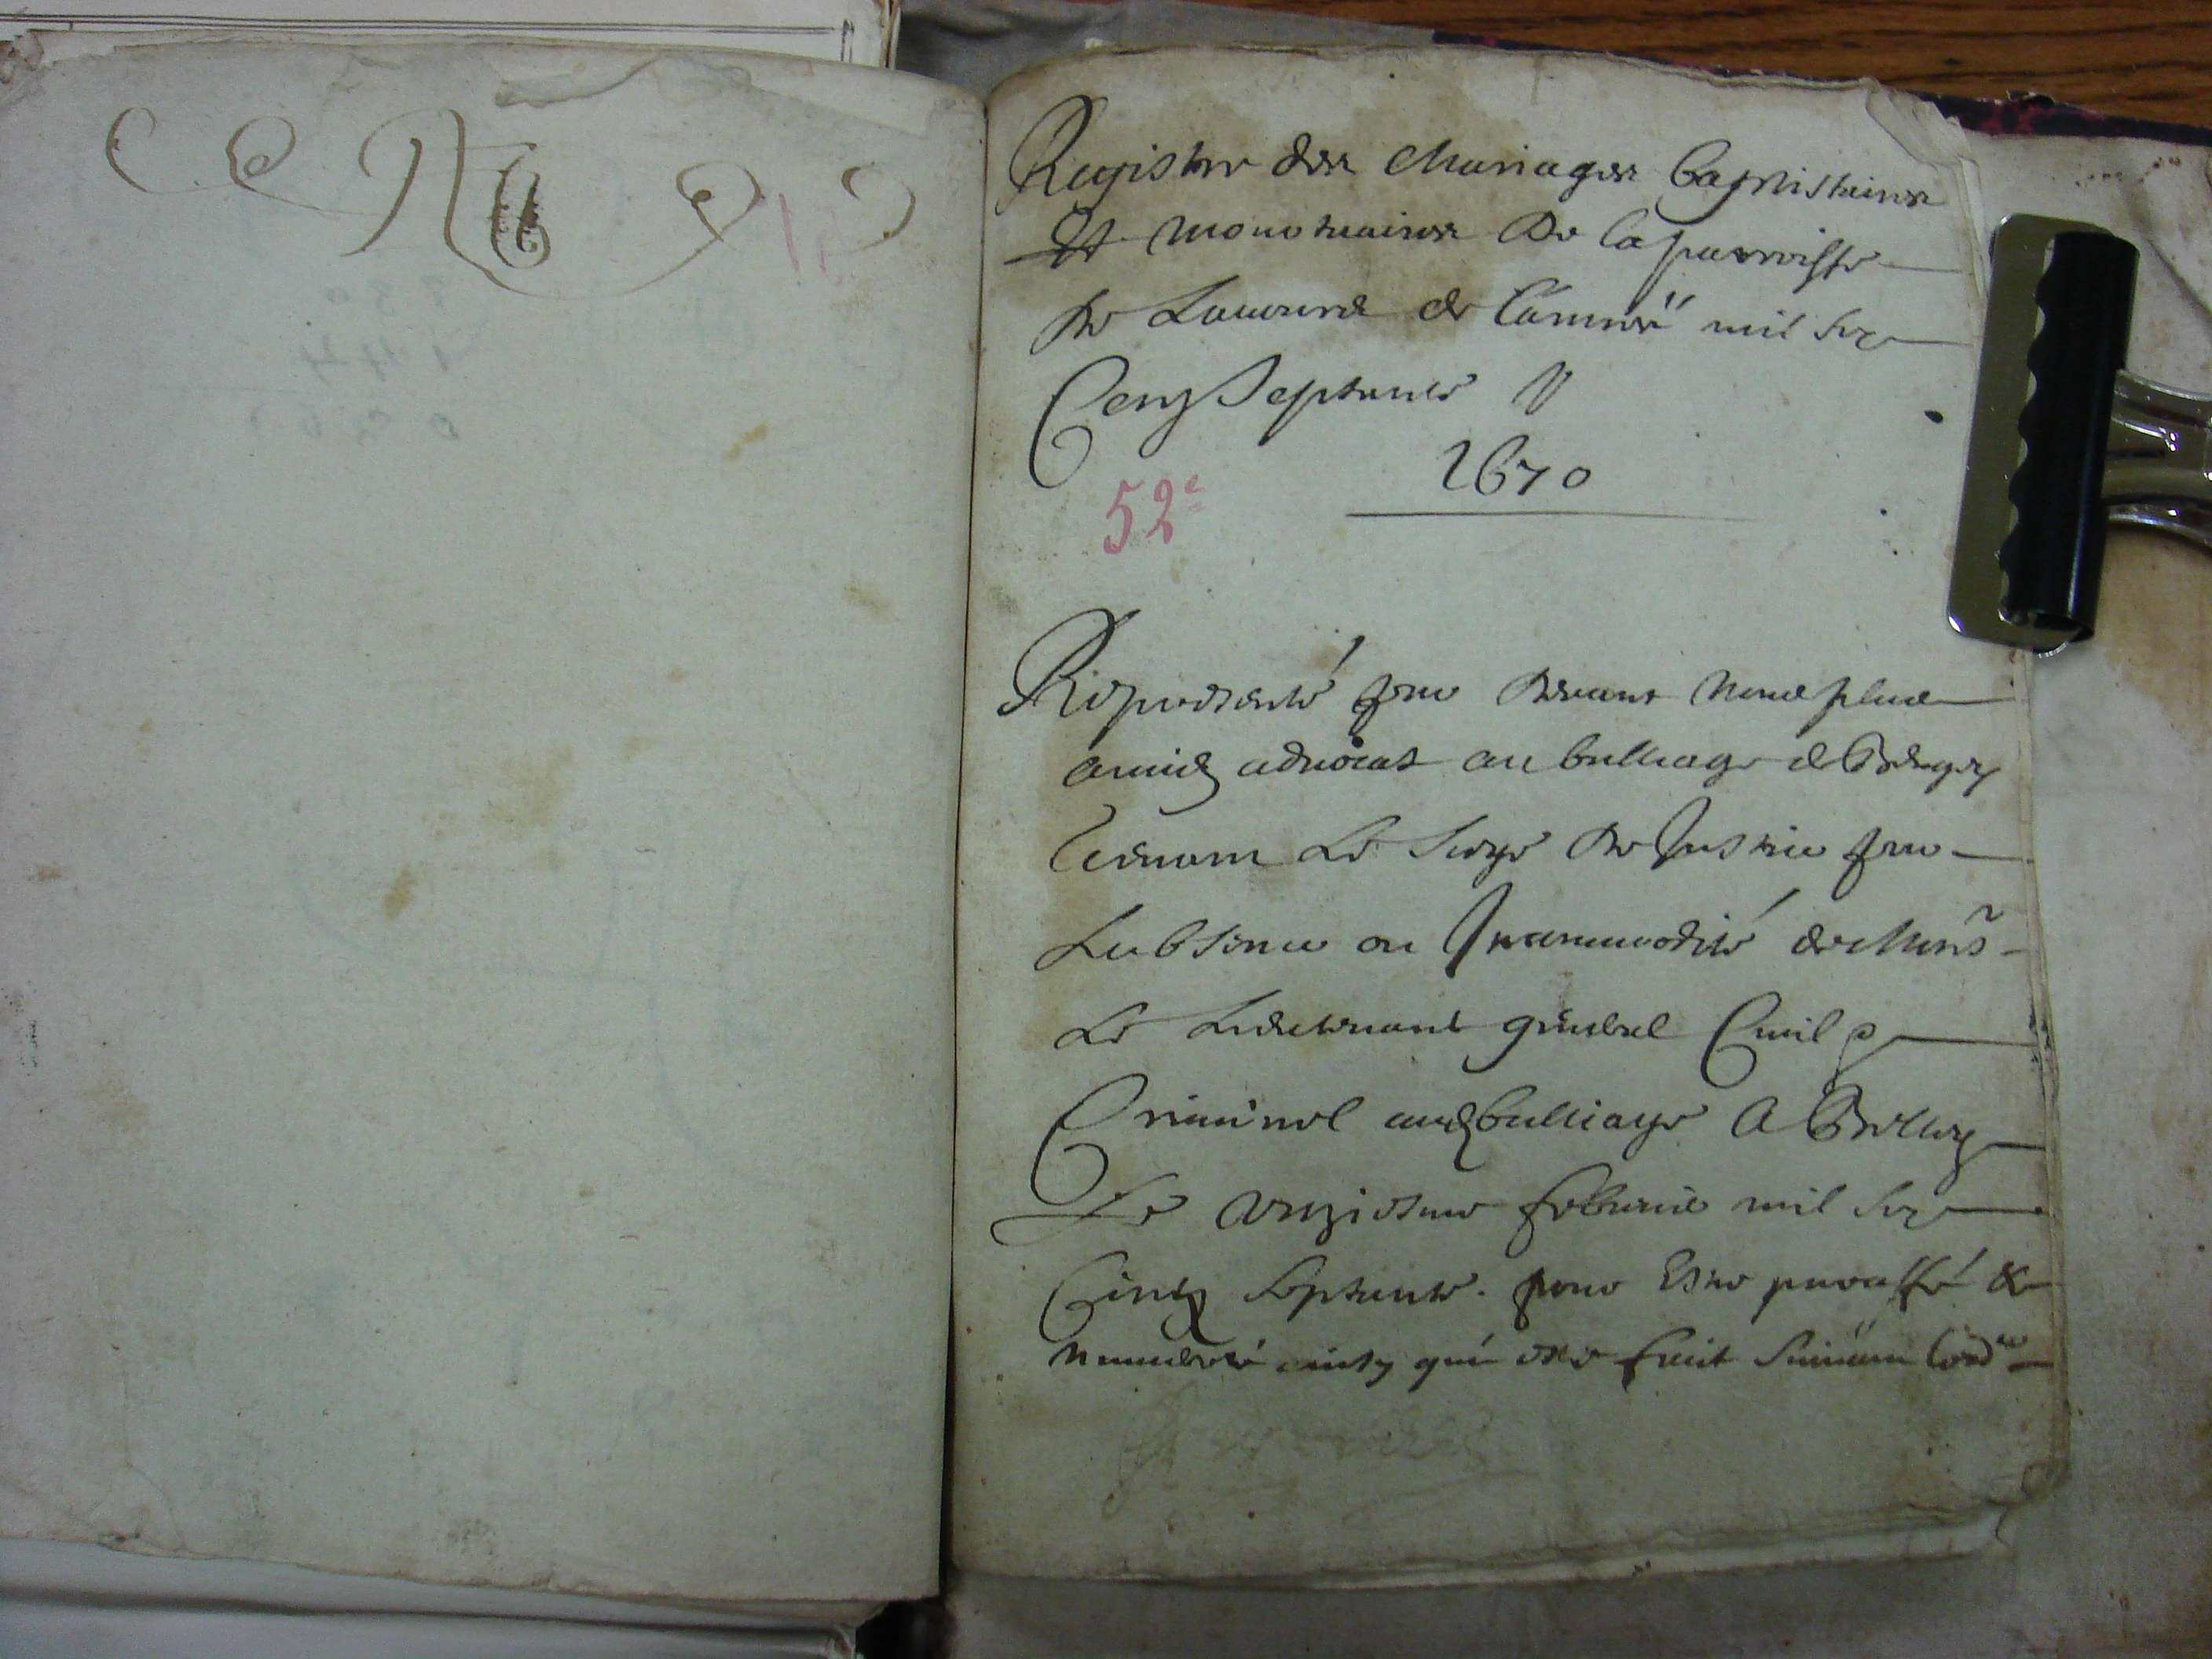 Registre des Mariages baptistaires
Et mortuaires De la parroisse
De de l'année mil six
Centz Septante
1670
52e
Represente par devant nous plus
antien advocat au balliage de Beugey
tenant Le Siege De Justice pour
L'absence ou Incommodité de Monsr
Le Lieutenant general Civil &
Criminel audt balliage A Belley
Le unziesme febvrier mil six
Centz Septante. pour Estre paraffé &
numeroté ainsy qui a esté fait Suivam lordce